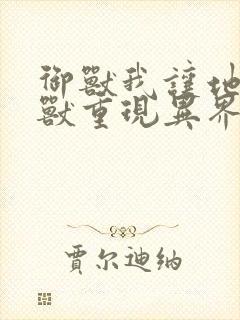 御獸我讓地
獸重現異界
賈尔迪纳